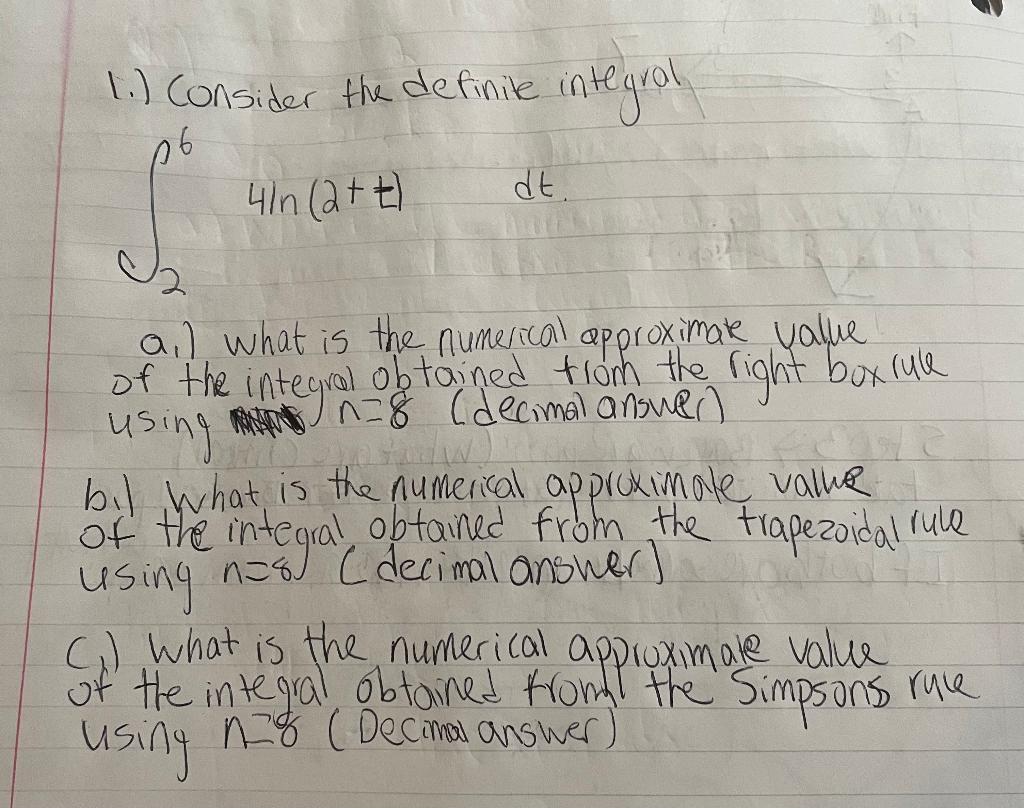 1.) Consider the definite integral
∫₂⁶ 4ln(2+t) dt.
a.) what is the numerical approximate value
of the integral obtained from the right box rule
using n=8 (decimal answer)
b.) What is the numerical approximate value
of the integral obtained from the trapezoidal rule
using n=8 (decimal answer)
C.) What is the numerical approximate value
of the integral obtained from the Simpsons rule
using n=8 (Decimal answer)